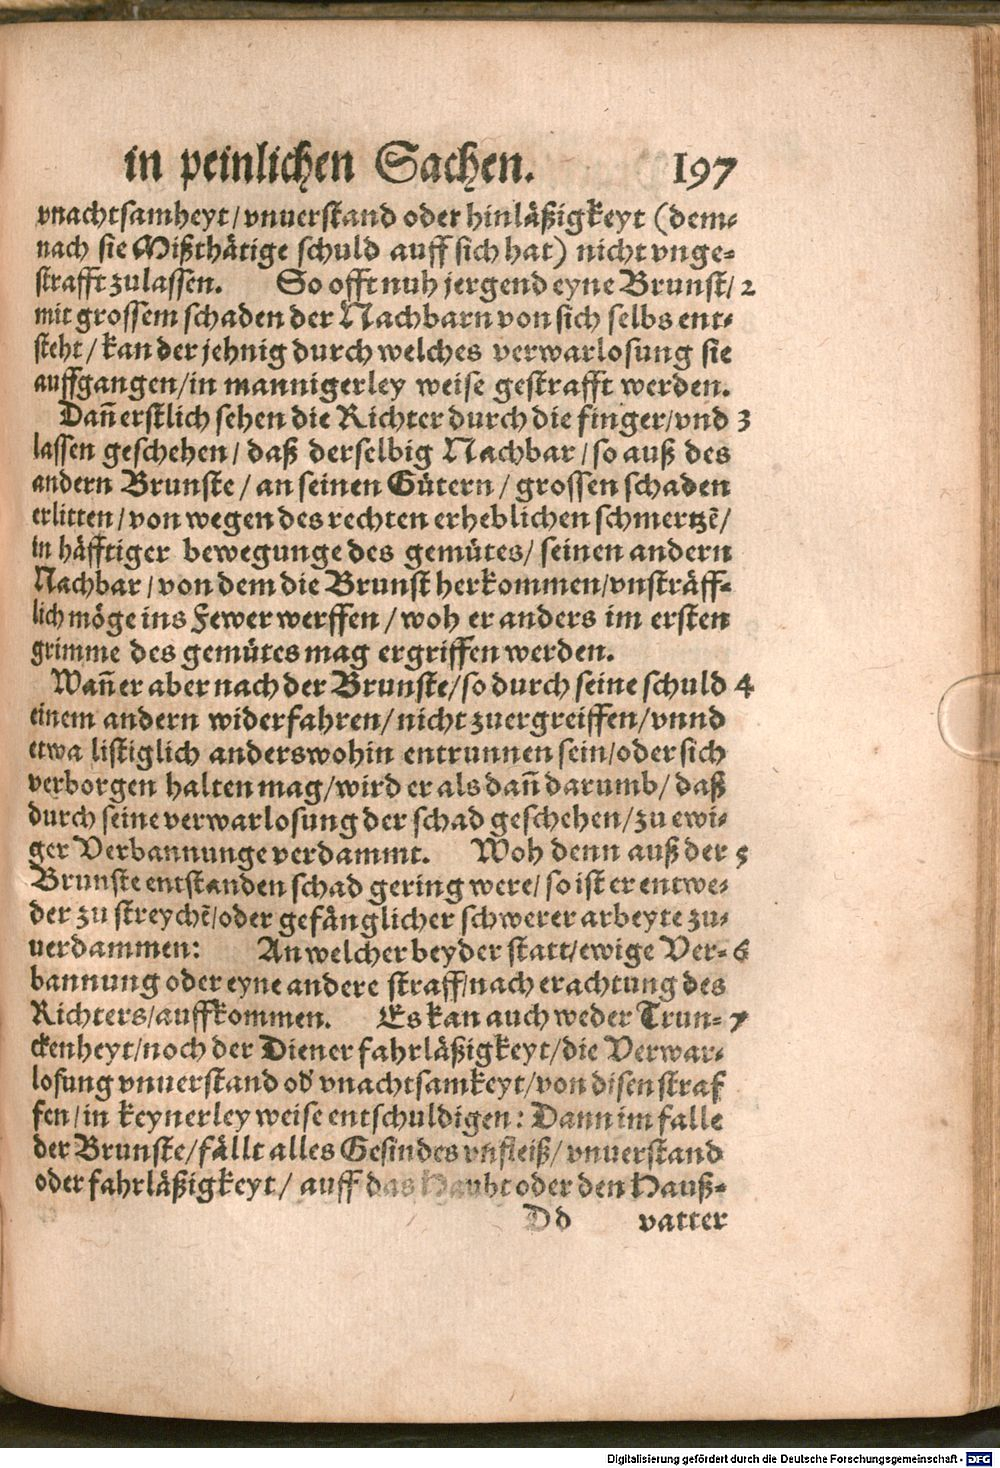 in peinlichen Sachen. 197
vnachtsamheyt/vnuerstand oder hinläßigkeyt (dem⸗
nach sie Mißthätige schuld auff sich hat) nicht vnge⸗
strafft zulassen. So offt nuh jergend eyne Brunst/ 2
mit grossem schaden der Nachbarn von sich selbs ent⸗
steht/kan der jehnig durch welches verwarlosung sie
auffgangen/in mannigerley weise gestrafft werden.
Dañ erstlich sehen die Richter durch die finger/vnd 3
lassen geschehen/ daß derselbig Nachbar/so auß des
andern Brunste/an seinen Gütern/ grossen schaden
erlitten/von wegen des rechten erheblichen schmertzē/
in häfftiger bewegunge des gemütes/ seinen andern
Nachbar/von dem die Brunst herkommen/vnsträff⸗
lich möge ins Fewer werffen/woh er anders im ersten
grimme des gemütes mag ergriffen werden.
Wañ er aber nach der Brunste/so durch seine schuld 4
einem andern widerfahren/nicht zuergreiffen/vnnd
etwa listiglich anderswohin entrunnen sein/oder sich
verborgen halten mag/wird er als dañ darumb/ daß
durch seine verwarlosung der schad geschehen/zu ewi⸗
ger Verbannunge verdammt. Woh denn auß der 5
Brunste entstanden schad gering were/ so ist er entwe⸗
der zu streychē/oder gefänglicher schwerer arbeyte zu⸗
uerdammen: An welcher beyder statt/ewige Ver⸗ 6
bannung oder eyne andere straff/nach erachtung des
Richters/auffkommen. Es kan auch weder Trun⸗ 7
ckenheyt/noch der Diener fahrläßigkeyt/die Verwar⸗
losung vnuerstand od' vnachtsamkeyt/von disen straf
fen/in keynerley weise entschuldigen: Dann im falle
der Brunste/fällt alles Gesindes vnfleiß/ vnuerstand
oder fahrläßigkeyt/ auff das Haubt oder den Hauß⸗
Dd vatter
Digitalisierung gefördert durch die Deutsche Forschungsgemeinschaft - DFG